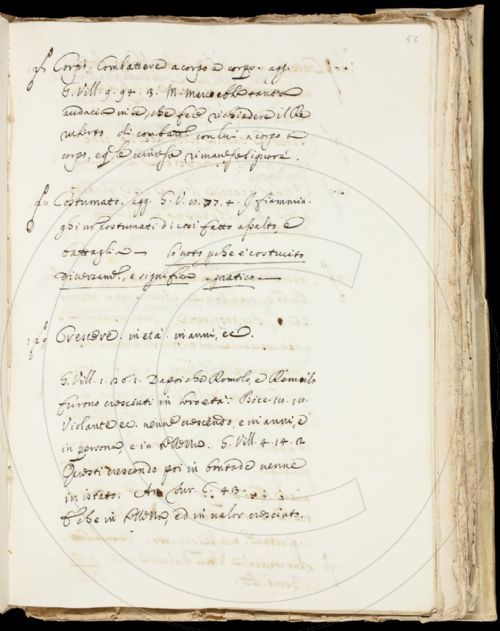 52
Corpo. Combattere a corpo a corpo. agg.
G. Vill. 9. 94. 3. M. ebbe tanta
audacia in se, che fece richiedere il Re
di combatt. con lui a corpo a
corpo, e qual vincesse rimanesse signore.
Costumato. agg. G. V. 77. 4. I fiammin-
ghi non costumati di così fatto assalto, e
battaglia — lo noto pche è costruito
diversamt., e significa pratico —
Crescere. in età in anni, ec.
G. Vill. 1. 26. 1. Dapoi che Romolo, e Remolo
furono cresciuti in loro età. Bocc. 10. 10.
Violante ec. venne crescendo, e in anni, e
in persona, e in bellezza. G. Vill. 4. 14. 2
Questi crescendo poi in bontade venne
in istato. Am. Fur. C. 43.
E che in bellezza, ed in valor cresciuto